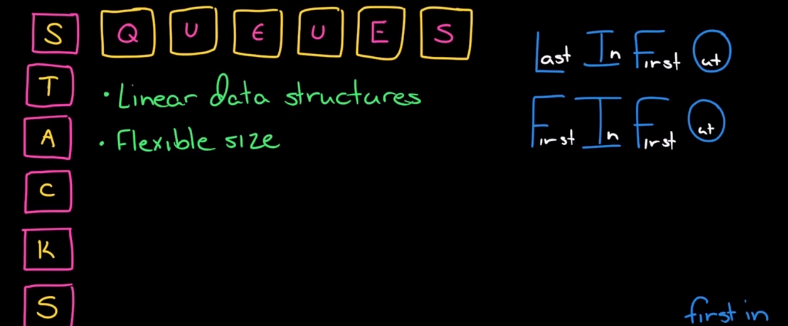 STACKS
QUEUES
• Linear data structures
• Flexible size
Last In First Out
First In First Out
first in